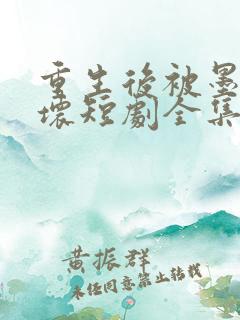 重生後被墨
壞短劇全集
黃振群
未经同意禁止转载